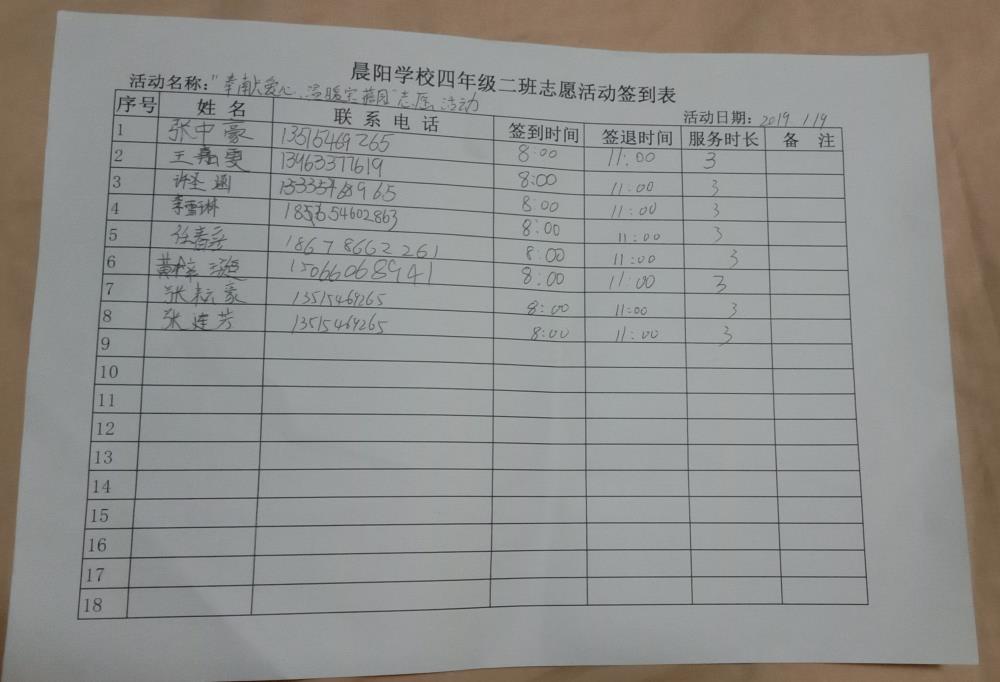 晨阳学校四年级二班志愿活动签到表
活动名称:"奉献爱心,温暖家蓓园"志愿活动
活动日期:2019 1.19
序号 姓名 联系电话 签到时间 签退时间 服务时长 备注
1 张中豪 13515469265 8:00 11:00 3
2 王嘉雯 13963377619 8:00 11:00 3
3 许圣涵 8:00 11:00 3
4 李雪琳 8:00 11:00 3
5 18678662261 8:00 11:00 3
6 黄梓 15066068941 8:00 11:00 3
7 张耘豪 13515469265 8:00 11:00 3
8 张连芳 13515469265 8:00 11:00 3
9
10
11
12
13
14
15
16
17
18